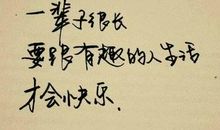 一辈子很长
要跟有趣的人生活
才会快乐.